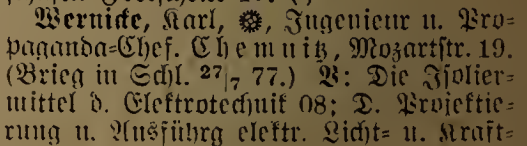 Wernicke, Karl, ⚙, Ingenieur u. Pro-
paganda-Chef. Chemnitz, Mozartstr. 19.
(Brieg in Schl. 27/7 77.) V: Die Isolier-
mittel d. Elektrotechnik 08; D. Projektie-
rung u. Ausführg elektr. Licht- u. Kraft-